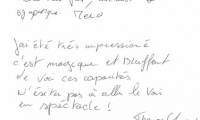 Merci
J'ai été très impressionné
c'est magique et Bluffant
de voir ces capacités
N'hésitez pas à aller le voir
en spectacle !